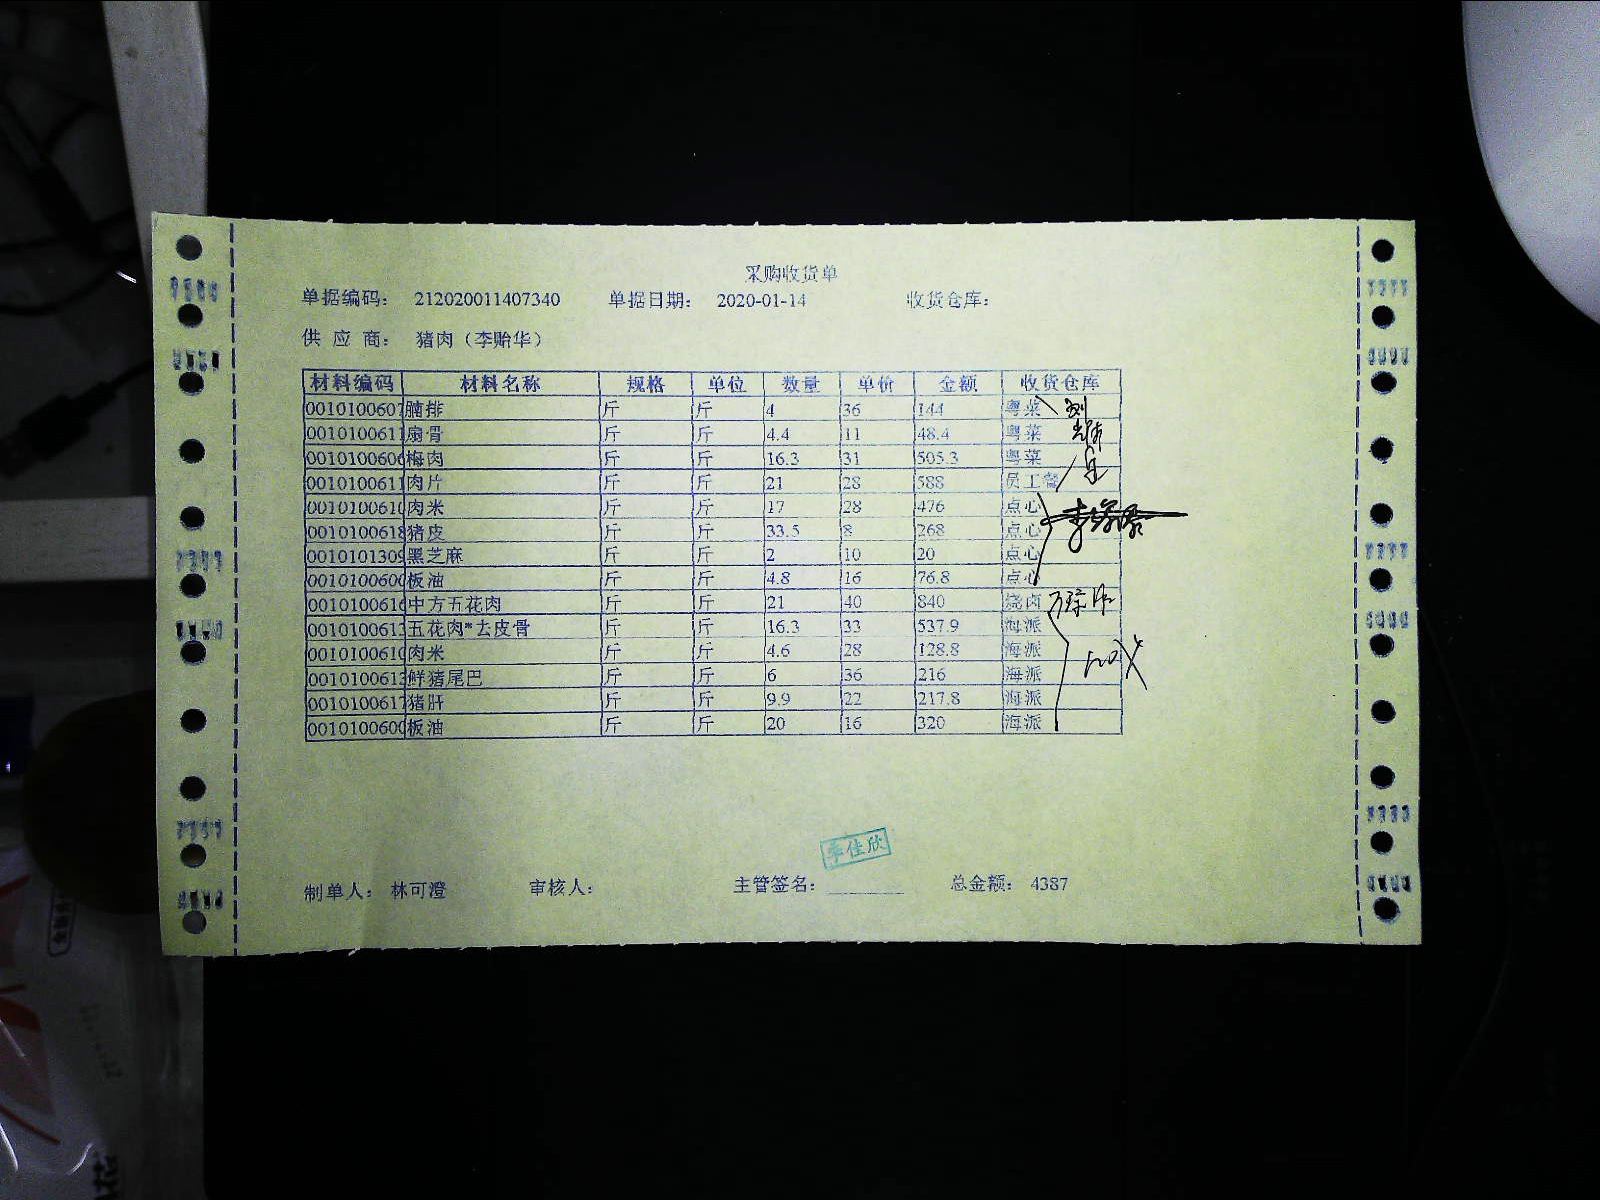 采购收货单
单据编码： 212020011407340 单据日期： 2020-01-14 收货仓库：
供 应 商： 猪肉（李贻华）
材料编码 材料名称 规格 单位 数量 单价 金额 收货仓库
0010100607 腩排 斤 斤 4 36 144 粤菜
0010100611 扇骨 斤 斤 4.4 11 48.4 粤菜
0010100606 梅肉 斤 斤 16.3 31 505.3 粤菜
0010100611 肉片 斤 斤 21 28 588 员工餐
0010100610 肉米 斤 斤 17 28 476 点心
0010100618 猪皮 斤 斤 33.5 8 268 点心
0010101309 黑芝麻 斤 斤 2 10 20 点心
0010100600 板油 斤 斤 4.8 16 76.8 点心
0010100616 中方五花肉 斤 斤 21 40 840 烧卤
0010100613 五花肉*去皮骨 斤 斤 16.3 33 537.9 海派
0010100610 肉米 斤 斤 4.6 28 128.8 海派
0010100613 鲜猪尾巴 斤 斤 6 36 216 海派
0010100617 猪肝 斤 斤 9.9 22 217.8 海派
0010100600 板油 斤 斤 20 16 320 海派
李佳欣
制单人： 林可澄 审核人： 主管签名： 总金额： 4387